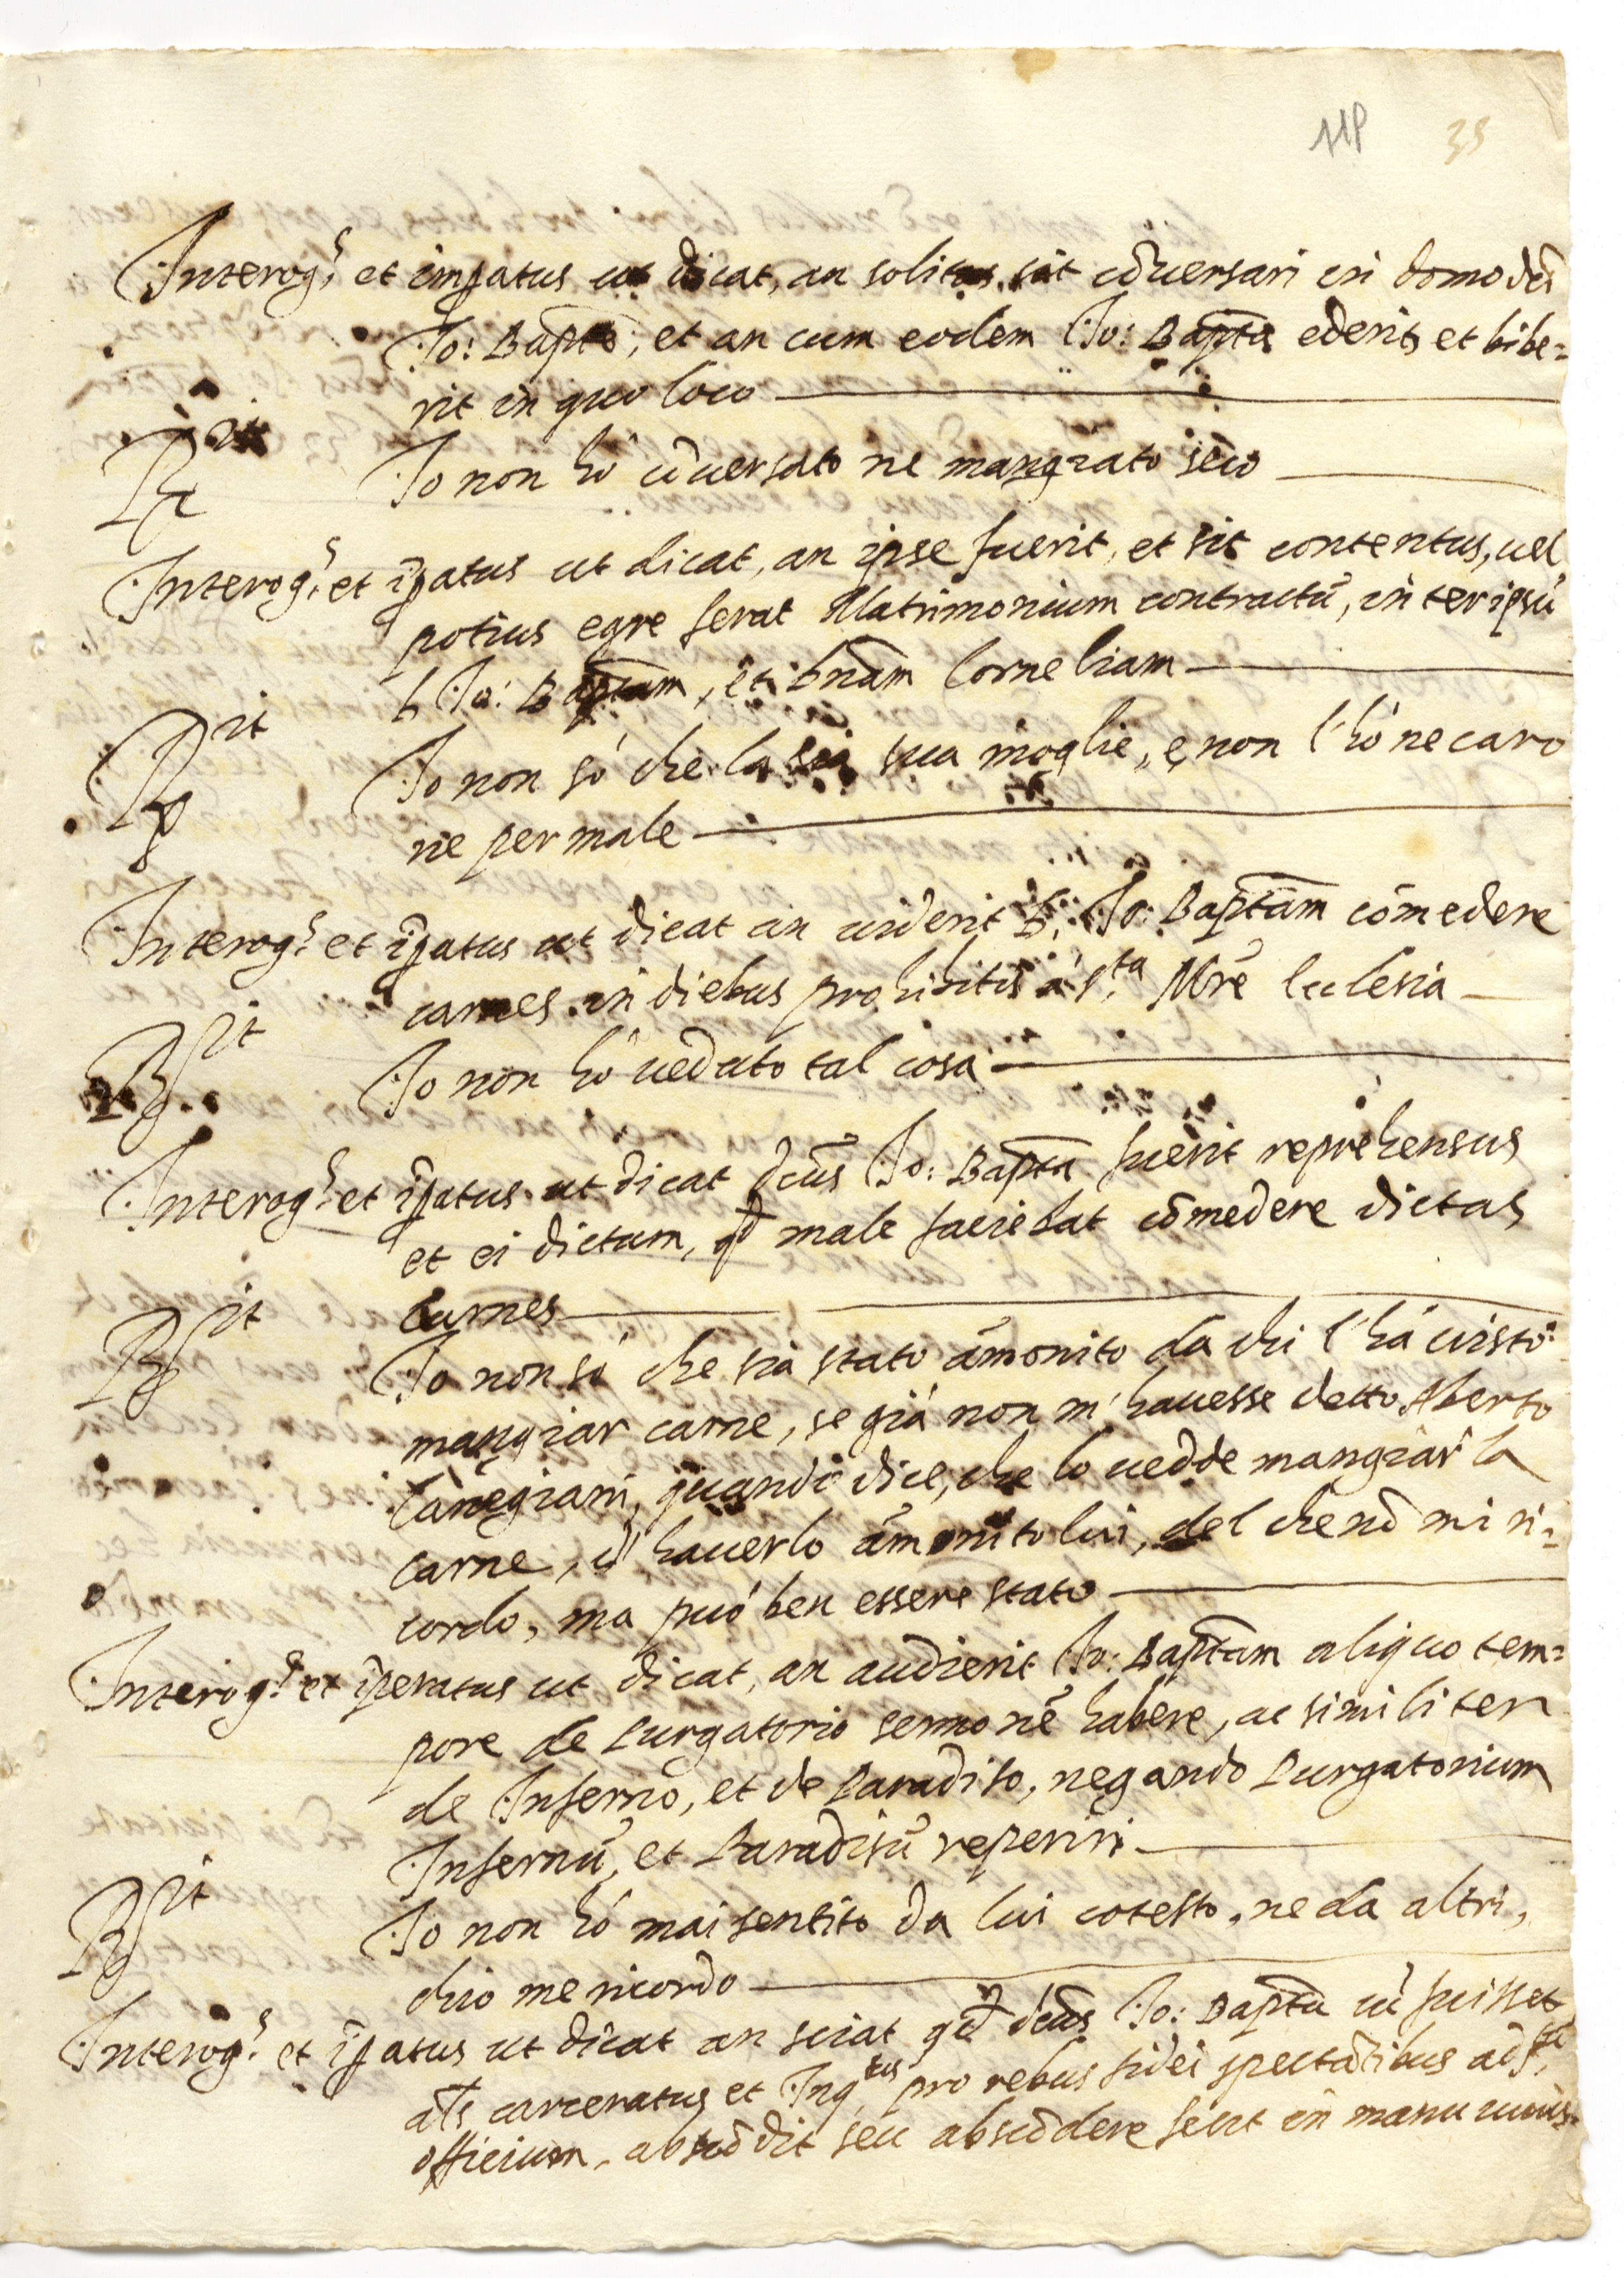 118 35
Interog.s et imp̱atus ut dicat, an solitus sit cōversari in domo dc̄i
Jo: Baptē, et an cum eodem Jo: Bapta ederit, et bibe=
rit in quo loco
Rit Jo non hò cōversato ne mangiato seco
Interog.s et īp̱atus ut dicat, an ipse fuerit, et sit contentus, uel
potius egre ferat Matrimonium contractū, inter ipsū
Jo: Baptam, et Corneliam
Rit Jo non sò che la sia sua moglie, e non l'hò ne caro
ne per male
Interog.s et īp̱atus ut dicat an uiderit Jo: Baptam cōmedere
carnes in diebus prohibitis à S.ta Mr̄e Ecclesia
Rit Jo non hò ueduto tal cosa
Interog.s et īp̱atus ut dicat dcūs Jo: Bapta fuerit reprehensus
et ei dictum, qd male faciebat cōmedere dictas
Carnes
Rit Jo non sò che sia stato āmonito da chi l'hà uisto
mangiar carne, se già non m'hauesse detto Alberto
quando dice, che lo uedde mangiar la
carne, d'hauerlo āmonito lui, del che nō mi ri=
cordo, ma può ben essere stato
Interog.s et īperatus ut dicat, an audierit Jo: Baptam aliquo tem=
pore de Purgatorio sermonē habere, ac similiter
de Inferno, et de Paradiso, negando Purgatorium
Infernū, et Paradisū reperiri
Rit Jo non hò mai sentito da lui cotesto, ne da altri,
chio me ricordo
Interog.s et īp̱atus ut dicat an sciat qd dcūs Jo: Bapta cū fuisset
als carceratus et Inq.tus pro rebus fidei spectātibus ad S.tū
officium, abscōdit seu abscōdere fecit in manu